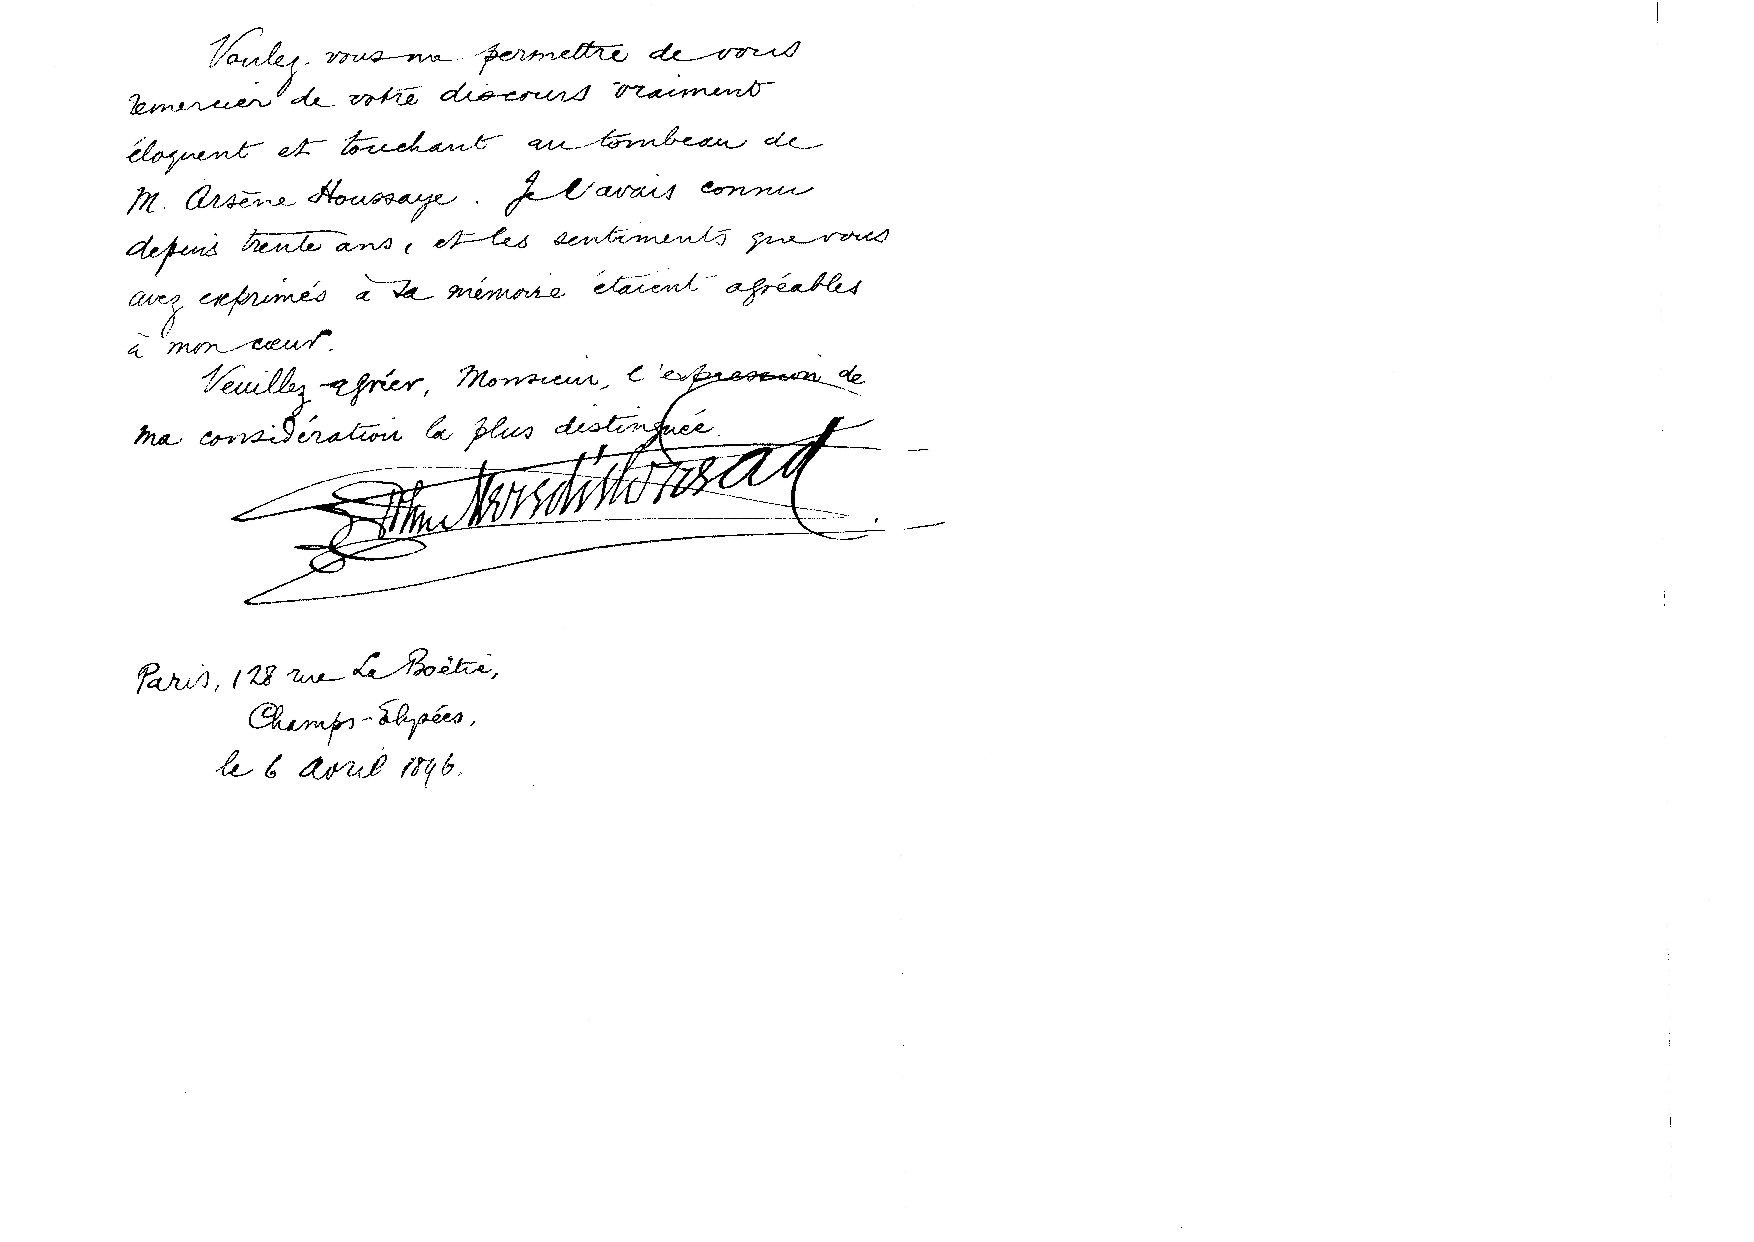 Voulez-vous me permettre de vous
remercier de votre discours vraiment
éloquent et touchant au tombeau de
M. Arsène Houssaye. Je l'avais connu
depuis trente ans, et les sentiments que vous
avez exprimés à sa mémoire étaient agréables
à mon cœur.
Veuillez agréer, Monsieur, l'expression de
ma considération la plus distinguée.
John Meredith Read
Paris, 128 rue La Boëtie,
Champs-Elysées,
le 6 Avril 1896.